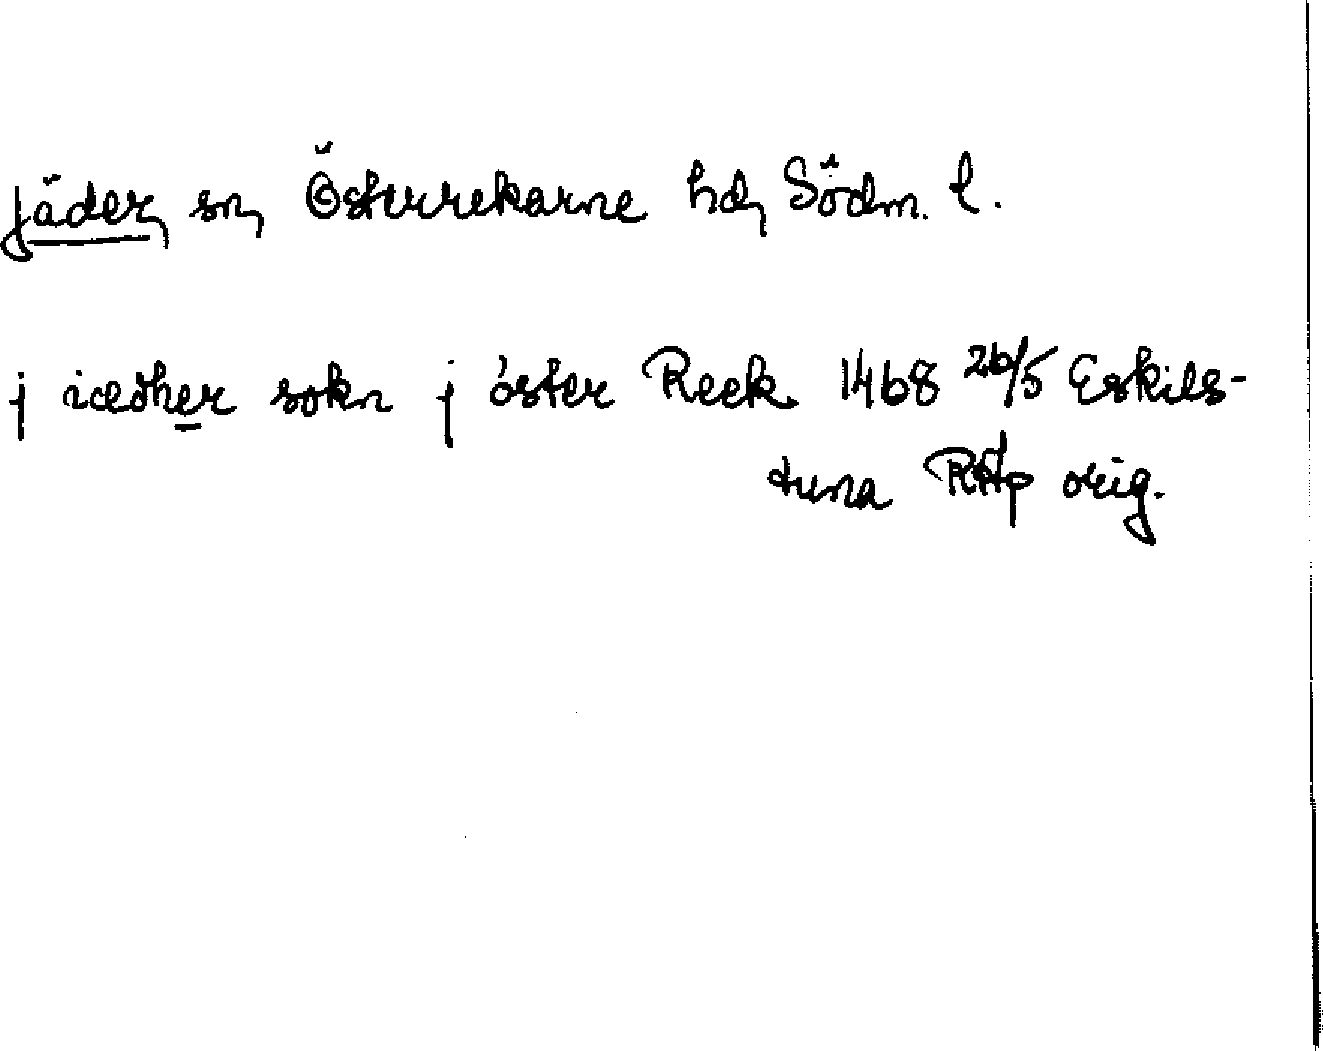 Jäder, sn, Österrekarne hd, Södm. l.
j iædher sokn j öster Reek. 1468 26/5 Eskils-
tuna RAp orig.